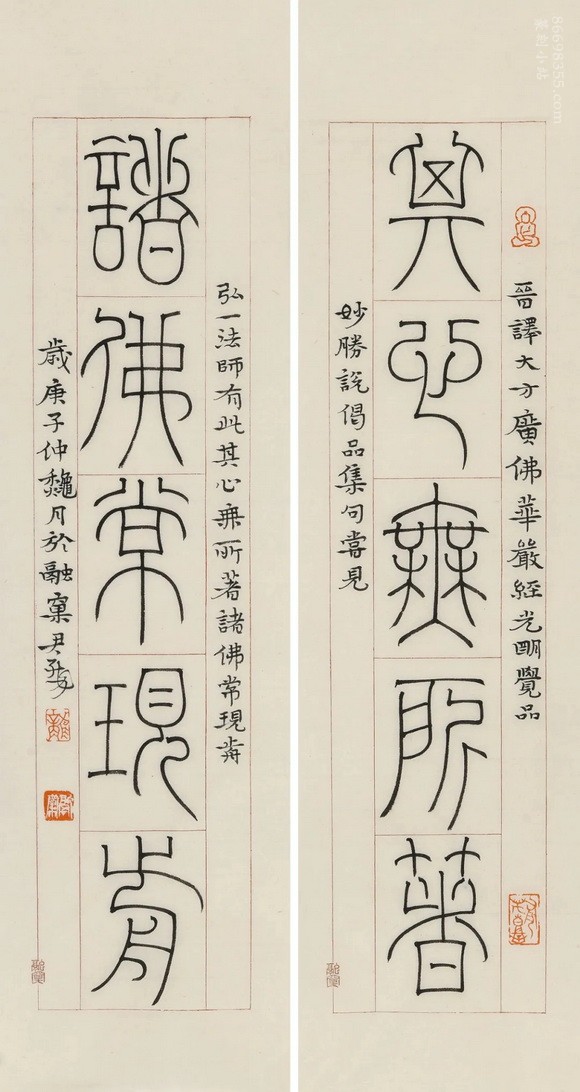 晉譯大方廣佛華嚴經光朙覺品
其心無所著
妙勝說偈品集句嘗見
弘一法師有此其心無所著諸佛常現歬
諸佛常現歬
歲庚子仲龝月於融窠尹
86698355.com